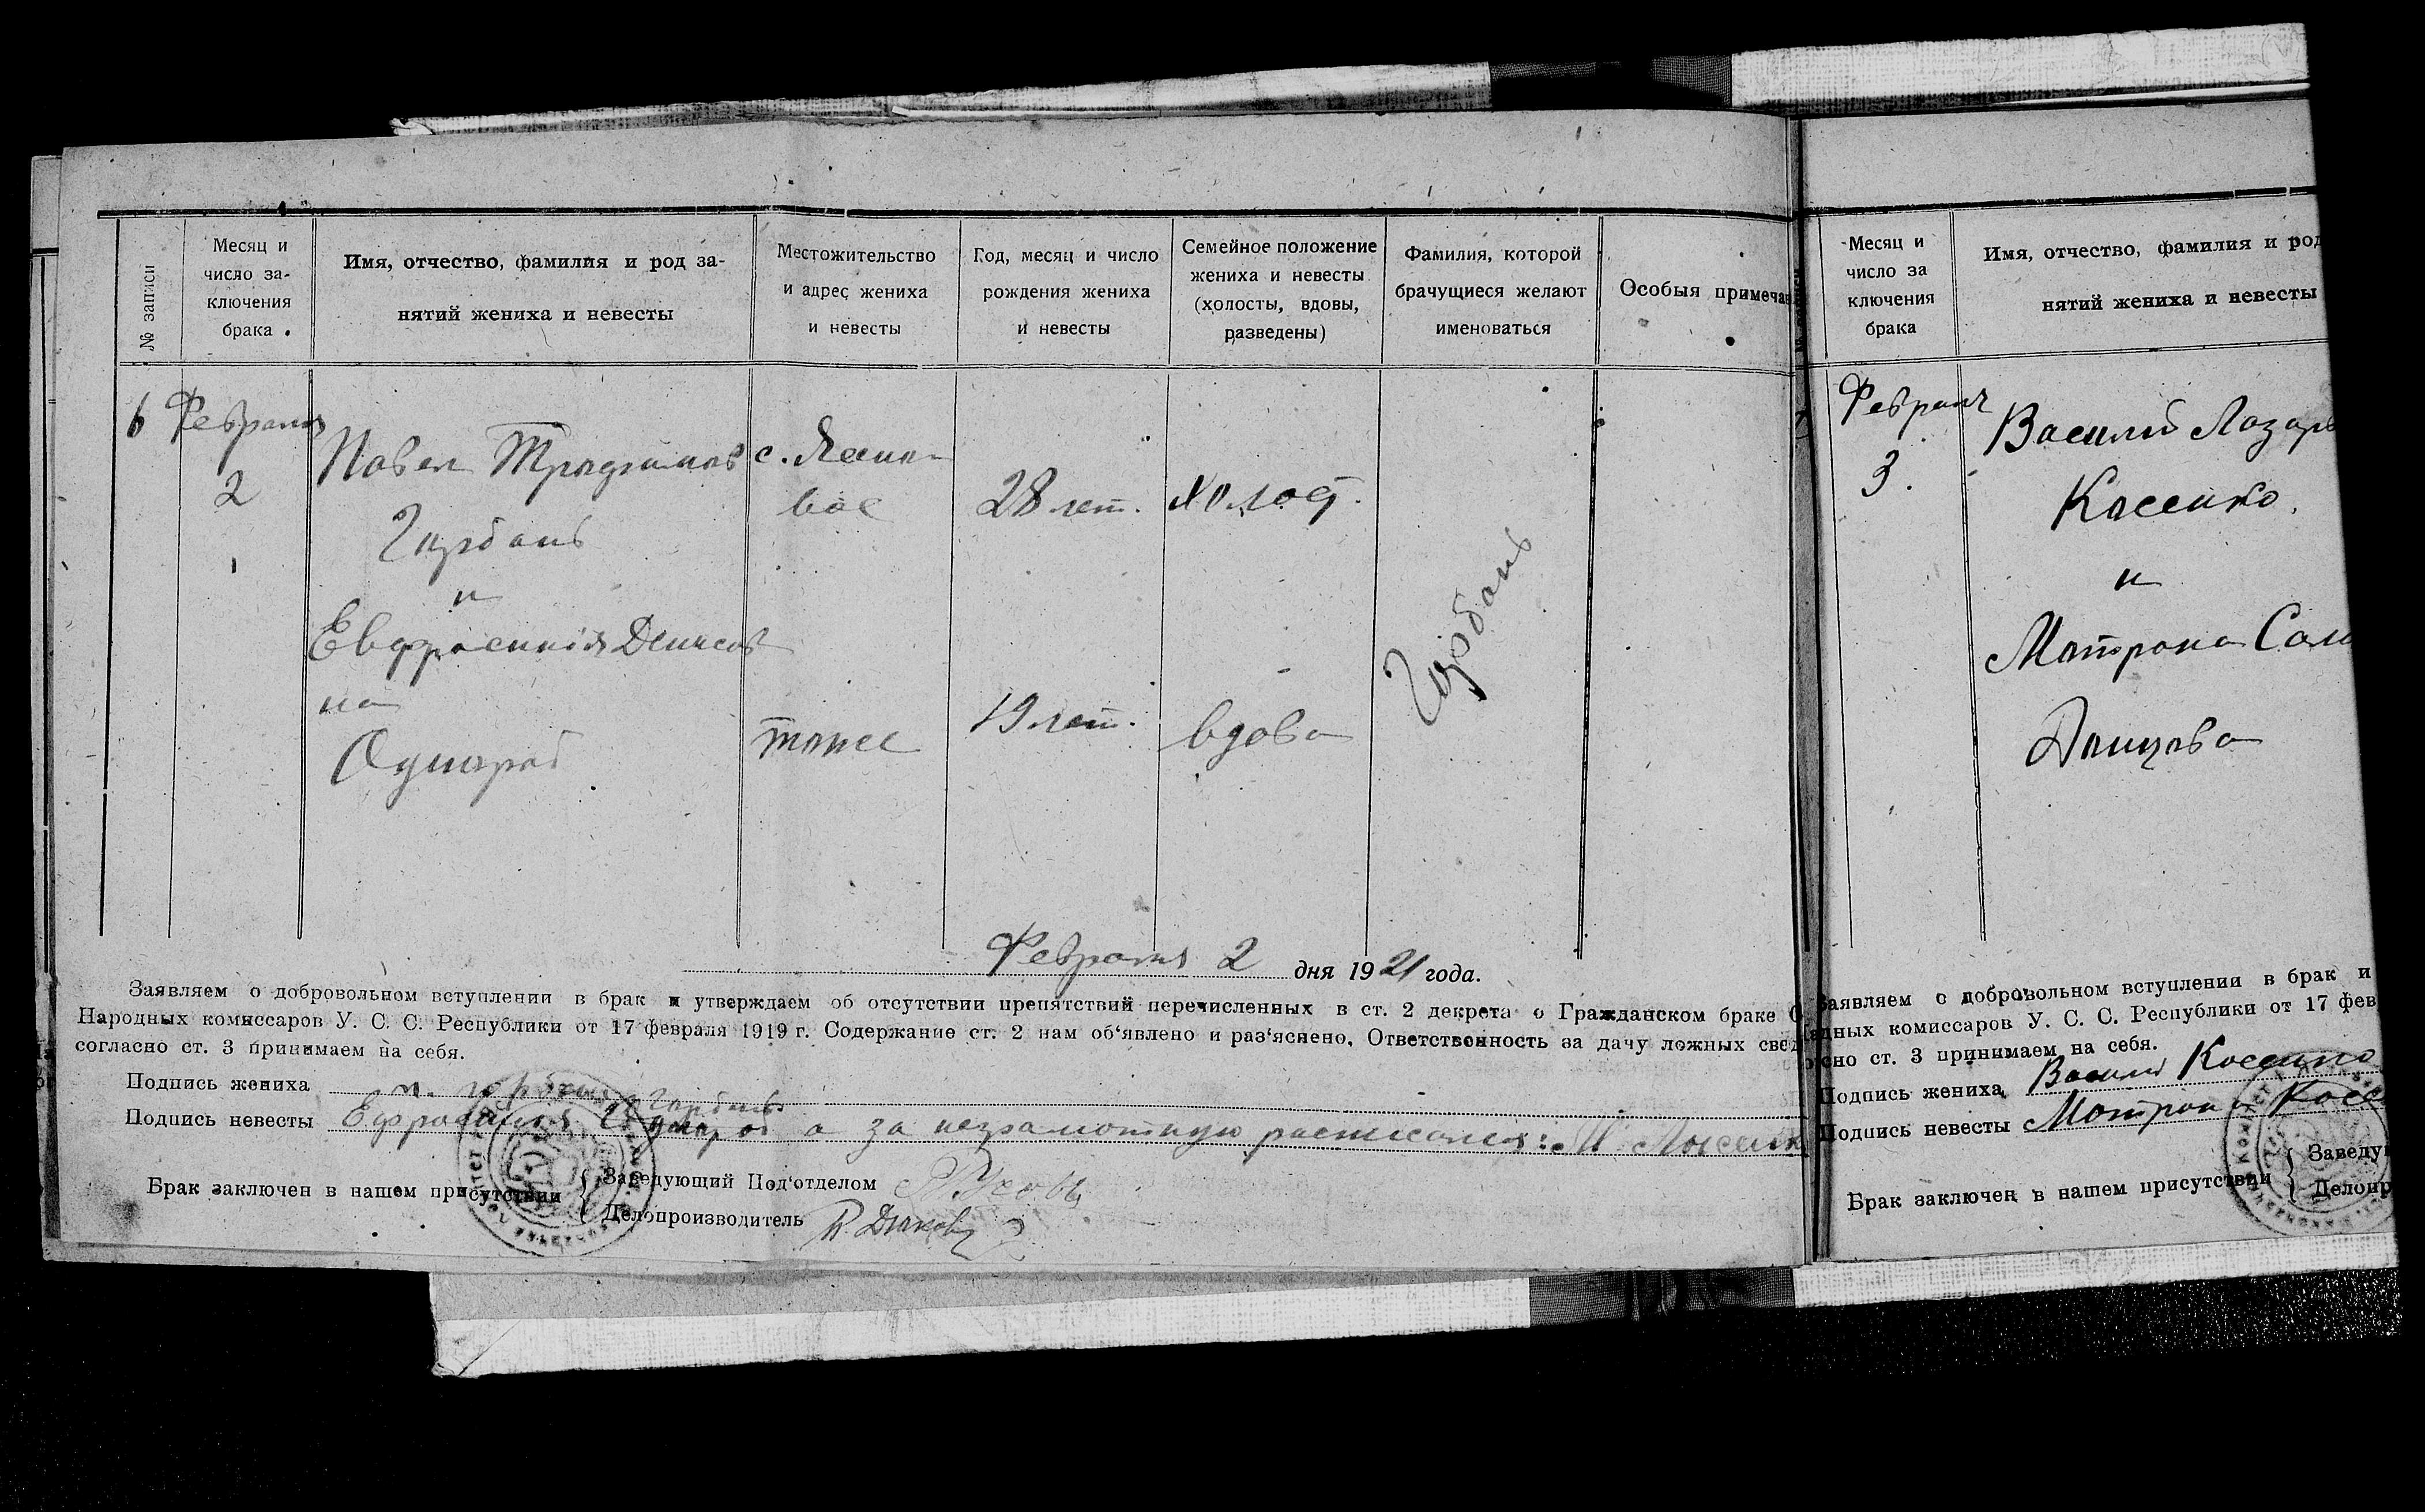 № записи
Месяц и
число за-
ключения
брака
Имя, отчество, фамилия и род за-
нятий жениха и невесты
Местожительство
и адрес жениха
и невесты
Год, месяц и число
рождения жениха
и невесты
Семейное положение
жениха и невесты
(холосты, вдовы,
разведены)
Фамилия, которой
брачущиеся желают
именоваться
Особыя примеча
6
Февраля
2
Павел
с.
вое
28 лет.
холост.
и
Евфросиния Денисов
на
тоже
19 лет.
вдова
Февраля 2 дня 1921 года.
Заявляем о добровольном вступлении в брак и утверждаем об отсутствии препятствий перечисленных в ст. 2 декрета о Гражданском браке С
Народных комиссаров У. С. С. Республики от 17 февраля 1919 г. Содержание ст. 2 нам об‘явлено и раз‘яснено. Ответственность за дачу ложных свед
согласно ст. 3 принимаем на себя.
Подпись жениха
Подпись невесты а за неграмотную расписался:
Брак заключен в нашем присутствии
Заведующий Под‘отделом
Делопроизводитель
Месяц и
число за
ключения
брака
Имя, отчество, фамилия и род
нятий жениха и невесты
Февраля
3.
Василий Лазарь
Косенко
и
Матрона
Донцова
Заявляем о добровольном вступлении в брак и
адных комиссаров У. С. С. Республики от 17 фев
сно ст. 3 принимаем на себя.
Подпись жениха Косенко
Подпись невесты Мотрона
Брак заключен в нашем присутствии
Заведу
Делопр